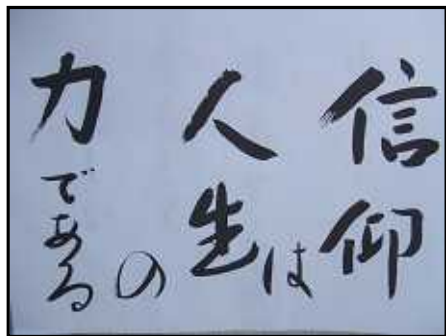 信仰は
人生の
力である